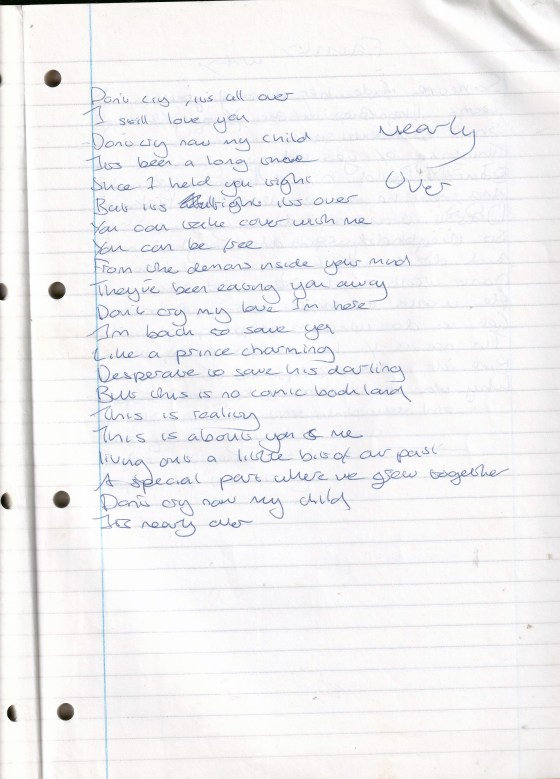 Nearly
Over
Don't cry, its all over
I still love you
Don't cry now my child
Its been a long while
Since I held you tight
But its alright its over
You can take cover with me
You can be free
From the demons inside your mind
They've been eating you away
Don't cry my love I'm here
I'm back to save yer
Like a prince charming
Desperate to save his darling
But this is no comic book land
This is reality
This is about you & me
living out a little bit of our past
A special part where we grew together
Don't cry now my child
Its nearly over